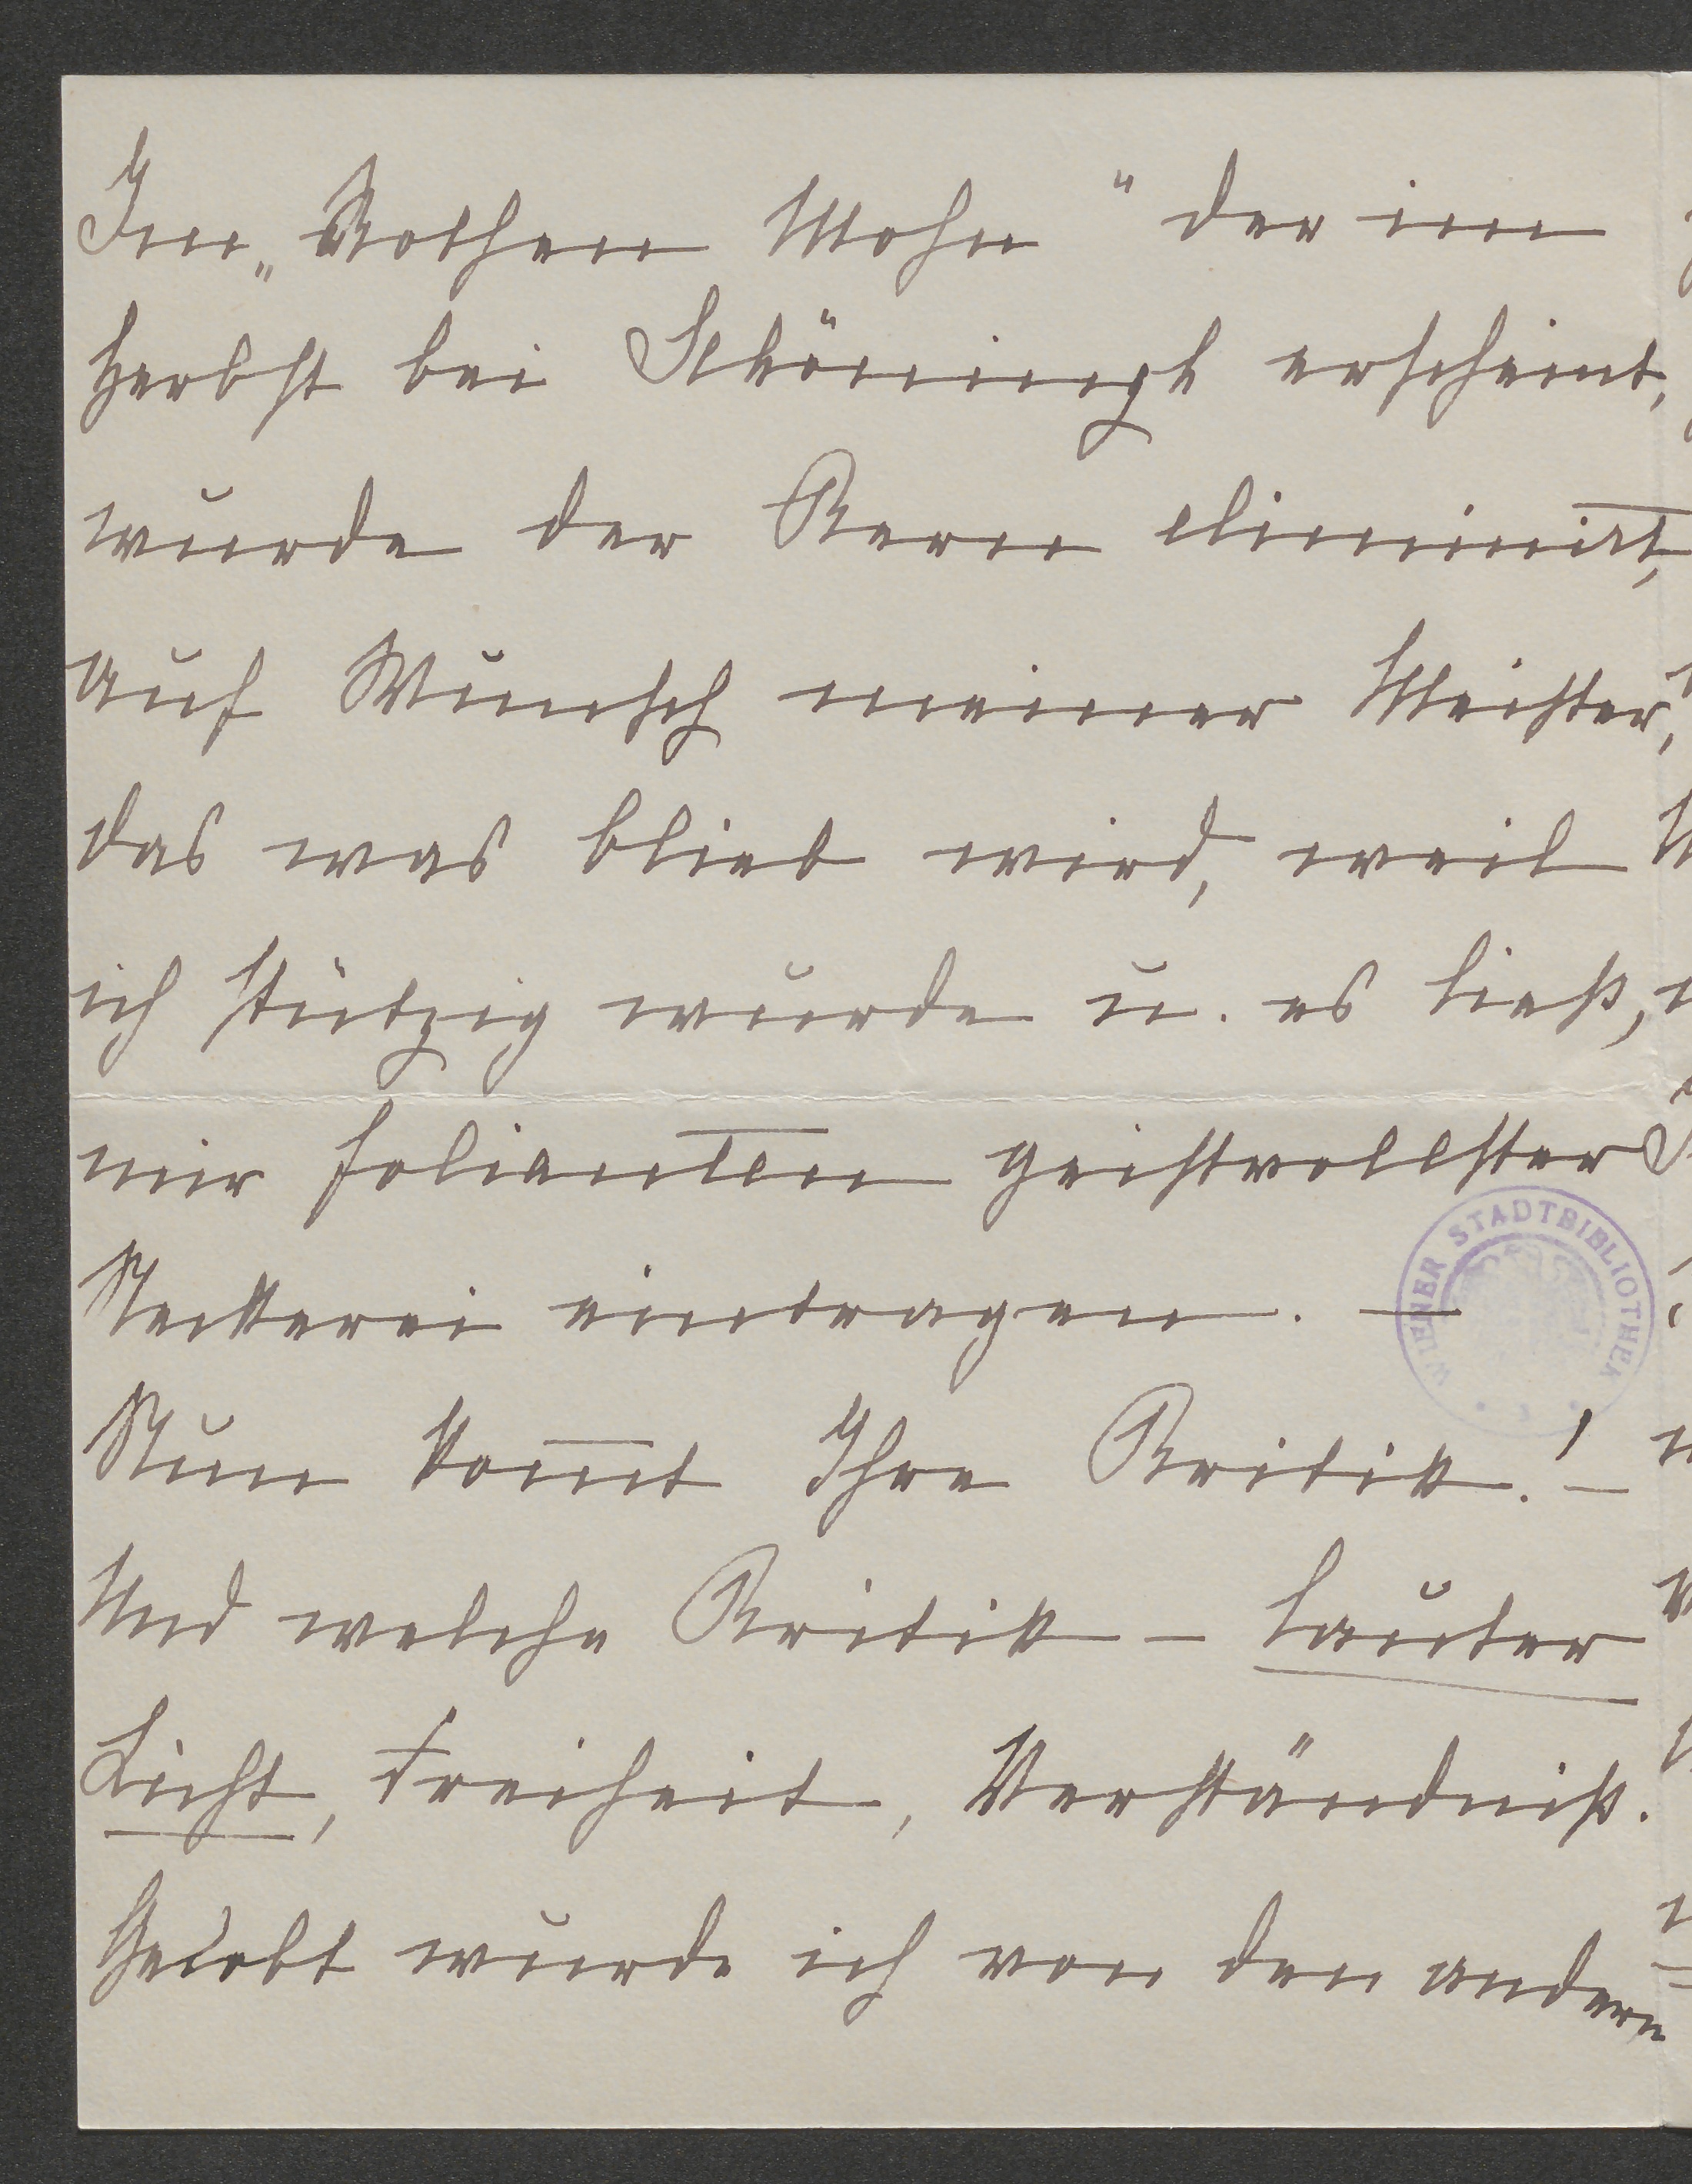 Im „Rothen Mohn" der im
Herbst bei Schöningh erscheint,
wurde der Kern eliminirt,
auf Wunsch meiner Meister,
das was blieb wird, weil
ich stützig wurde u. es ließ,
mir Folianten geistvollster
Neckerei eintragen. —
WIENER STADTBIBLIOTHEK
Nun kom̅t Ihre Kritik! —
Und welche Kritik — lauter
Licht, Freiheit, Verständniß.
Gelobt wurde ich von den andern